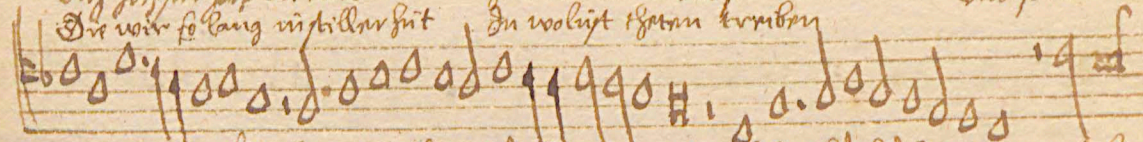 Die wir so lang in stiller hůt In wolust theten treiben